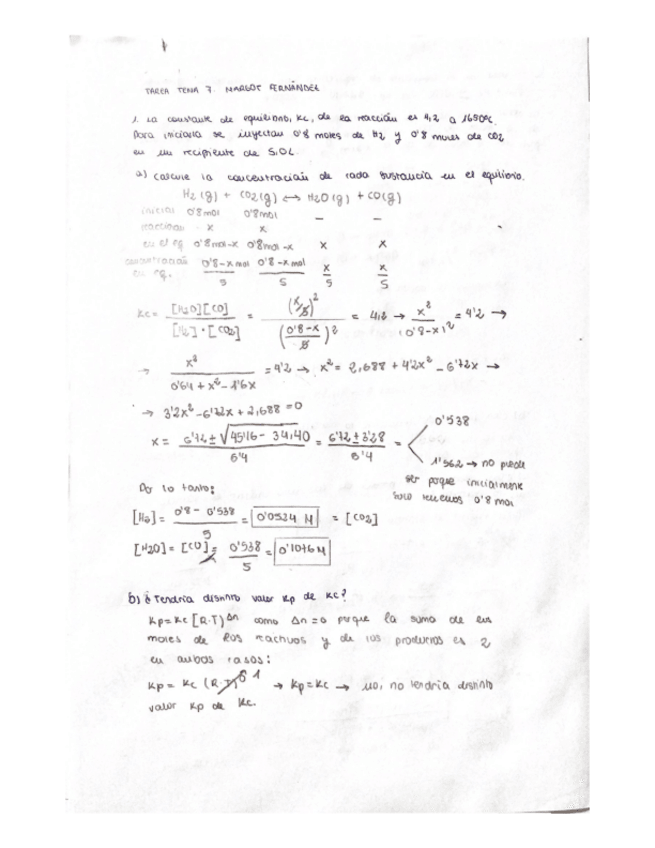 TAREA TEMA 7. MARGOT FERNÁNDEZ
1. La constante de equilibrio, Kc, de la reacción es 4,2 a 1650ºC.
Para iniciarla se inyectan 0'8 moles de H2 y 0'8 moles de CO2
en un recipiente de 5,0L.
a) Calcule la concentración de cada sustancia en el equilibrio.
H2 (g) + CO2 (g) ↔ H2O (g) + CO (g)
inicial 0'8 mol 0'8 mol – –
reaccionan x x
en el eq 0'8 mol-x 0'8 mol-x x x
concentración en eq. 0'8-x mol/5 0'8-x mol/5 x/5 x/5
Kc = [H2O][CO] / [H2]·[CO2] = (x/5)² / (0'8-x/5)² = 4,2 → x² / (0'8-x)² = 4'2 →
→ x² / 0'64 + x² - 1'6x = 4'2 → x² = 2,688 + 4'2x² - 6'72x →
→ 3'2x² - 6'72x + 2,688 = 0
x = 6'72 ± √45'16 - 34,40 / 6'4 = 6'72 ± 3'28 / 6'4 = 0'538
1'562 → no puede
ser porque inicialmente
solo tenemos 0'8 mol
Por lo tanto:
[H2] = 0'8 - 0'538 / 5 = 0'0524 M = [CO2]
[H2O] = [CO] = 0'538 / 5 = 0'1076 M
b) ¿Tendría distinto valor Kp de Kc?
Kp = Kc [R·T]^Δn como Δn = 0 porque la suma de los
moles de los reactivos y de los productos es 2
en ambos casos:
Kp = Kc (R·T)^0 1 → Kp = Kc → no, no tendría distinto
valor Kp de Kc.